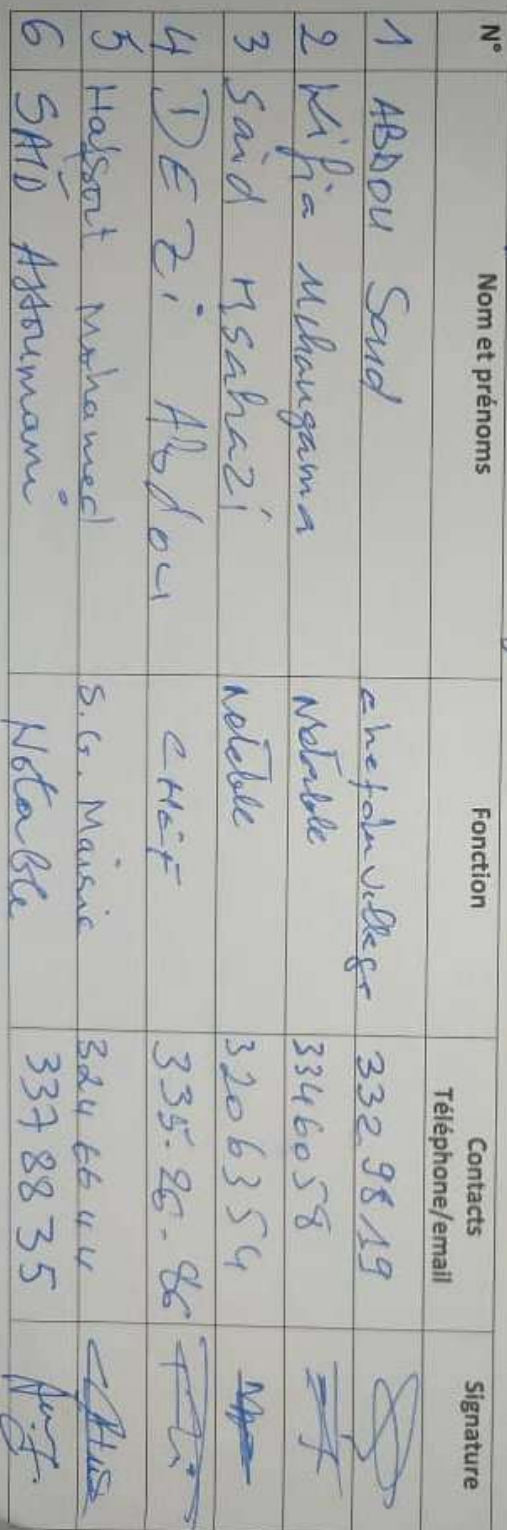 N° Nom et prénoms Fonction Contacts Téléphone/email Signature
1 ABDOU Said chef du village 332 98 19
2 Mchangama Notable 334 60 58
3 Said Msahazi Notable 320 63 54
4 DEZI Abdou CHEF 335-26-86
5 Mohamed S.G. Mairie 324 66 44
6 SAID Assoumani Notable 337 88 35